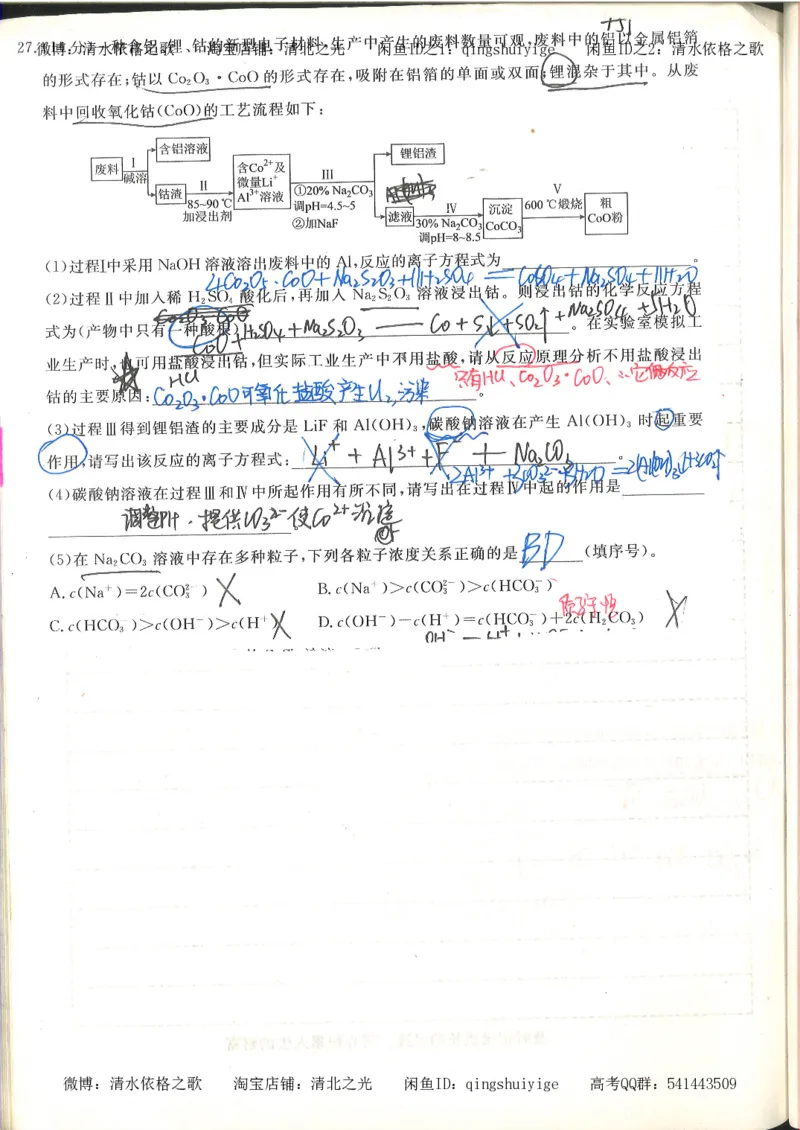 27.
微博：清水依格之歌 淘宝店铺：清北之光 闲鱼ID之1：qingshuiyige 闲鱼ID之2：清水依格之歌
一种含铝、锂、钴的新型电子材料,生产中产生的废料数量可观,废料中的铝以金属铝箔
的形式存在;钴以 Co₂O₃·CoO 的形式存在,吸附在铝箔的单面或双面;锂混杂于其中。从废
料中回收氧化钴(CoO)的工艺流程如下:
废料 Ⅰ 碱溶
含铝溶液
钴渣
Ⅱ 85~90 ℃ 加浸出剂
含Co²⁺及微量Li⁺ Al³⁺溶液
Ⅲ ①20% Na₂CO₃ 调pH=4.5~5 ②加NaF
锂铝渣
滤液
Ⅳ 30% Na₂CO₃ 调pH=8~8.5
沉淀 CoCO₃
Ⅴ 600 ℃煅烧
粗 CoO粉
(1)过程Ⅰ中采用 NaOH 溶液溶出废料中的 Al,反应的离子方程式为 。
4Co₂O₃·CoO+Na₂S₂O₃+11H₂SO₄ = CoSO₄+Na₂SO₄+11H₂O
(2)过程Ⅱ中加入稀 H₂SO₄ 酸化后,再加入 Na₂S₂O₃ 溶液浸出钴。则浸出钴的化学反应方程
式为(产物中只有一种酸根) 。在实验室模拟工
CoO+H₂SO₄+Na₂S₂O₃ — Co+S↓+SO₂↑+Na₂SO₄+5H₂O
业生产时,也可用盐酸浸出钴,但实际工业生产中不用盐酸,请从反应原理分析不用盐酸浸出
HCl
钴的主要原因: 。
Co₂O₃·CoO可氧化盐酸产生Cl₂,污染
只有HCl、Co₂O₃·CoO、∴它俩反应
(3)过程Ⅲ得到锂铝渣的主要成分是 LiF 和 Al(OH)₃,碳酸钠溶液在产生 Al(OH)₃ 时起重要
作用,请写出该反应的离子方程式: 。
Li⁺+Al³⁺+F⁻+Na₂CO₃
2Al³⁺+3CO₃²⁻+3H₂O=2Al(OH)₃↓+3CO₂↑
(4)碳酸钠溶液在过程Ⅲ和Ⅳ中所起作用有所不同,请写出在过程Ⅳ中起的作用是
调整pH.提供CO₃²⁻使Co²⁺沉淀
(5)在 Na₂CO₃ 溶液中存在多种粒子,下列各粒子浓度关系正确的是 BD (填序号)。
A.c(Na⁺)=2c(CO₃²⁻)
B.c(Na⁺)>c(CO₃²⁻)>c(HCO₃⁻)
C.c(HCO₃⁻)>c(OH⁻)>c(H⁺)
D.c(OH⁻)-c(H⁺)=c(HCO₃⁻)+2c(H₂CO₃)
微博：清水依格之歌 淘宝店铺：清北之光 闲鱼ID：qingshuiyige 高考QQ群：541443509